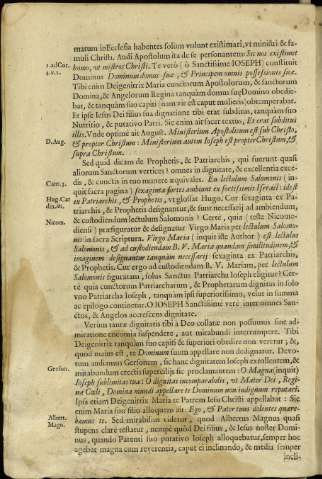 matum in Ecclesia habentes solùm volunt existimari, vt ministri & famuli Christi. Audi Apostolum ita de se personantem: Sic nos existimet
1. ad Cor. 4. v. 1.
homo, vt ministros Christi. Te verò (ò Sanctissime IOSEPH) constituit
Dominus Dominum domus suæ, & Principem omnis possessionis suæ.
Tibi enim Deigenitrix Maria cunctorum Apostolorum, & Sanctorum
Domina, & Angelorum Regina tanquàm domus suæ Domino obediebat, & tanquàm suo capiti (nam vir est caput mulieris) obtemperabat.
Et ipse Iesus Dei filius sua dignatione tibi erat subditus, tanquàm suo
Nutritio, & putatiuo Patri. Sic enim ait sacer textus, Et erat subditus
illis. Vnde optimè ait August. Ministerium Apostolicum est sub Christo,
D. Aug.
& propter Christum: Ministerium autem Ioseph est propter Christum, &
supra Christum.
Sed quid dicam de Prophetis, & Patriarchis, qui fuerunt quasi
aliorum Sanctorum vertices? omnes in dignitate, & excellentia excedis, & cunctis in tuo munere anquiridos. En lectulum Salomonis (inquit sacra pagina) sexaginta fortes ambiunt ex fortissimis Israel: idest
Cant. 3.
ex Patriarchis, & Prophetis, vt glossat Hugo. Cor sexaginta ex Patriarchis, & Prophetis designantur, & sunt necessarij ad ambiendum,
Hug. Car
& custodiendum lectulum Salomonis? Certè, quia (teste Nicomediensi)
Nicom.
præfiguratur & designatur Virgo Maria per lectulum Salomonis in sacra Scriptura. Virgo Maria (inquit iste Author) est lectulus
Salomonis, & ad custodiendam B. V. Maria quandam similitudinem, &
imaginem designantur tanquàm necessarij sexaginta ex Patriarchis,
& Prophetis. Cur ergo ad custodiendam B. V. Mariam, per lectulum
Salomonis figuratam, solus Sanctus Patriarcha Ioseph eligitur? Certè quia cunctorum Patriarcharum, & Prophetarum dignitas in solo
vno Patriarcha Ioseph, tanquàm ipsis superiori, velut in summa
ac epilogo continetur. O IOSEPH Sanctissime verè inter omnes Sanctos, & Angelos accrescens dignitate.
Verùm tantæ dignitatis tibi à Deo collatæ non possumus sine admiratione encomia suspendere, aut mirabundi interrumpere. Tibi
Deigenitrix tanquàm suo capiti & superiori obedire non veretur, &,
quod maius est, te Dominum suum appellare non dedignatur. Deuotum audiamus Gersonem, sic hanc dignitatem Ioseph extollentem, &
mirabundum erectis supercilijs sic proclamantem: O Magna (inquit)
Gerson.
Ioseph sublimitas tua! O dignitas incomparabilis, vt Mater Dei, Regina Cœli, Domina mundi appellare te Dominum non indignum reputarit.
Ipsa etiam Deigenitrix Maria te Patrem Iesu Christi appellabat: Sic
enim Maria suo filio alloquens ait: Ego, & Pater tuus dolentes quærebamus te. Sed mirabilius videtur, quod Albertus Magnus quasi
Albert. Magn.
stupens clarè testatur, nempè quòd Dei filius, & Iesus noster Dominus, quando Parenti suo putatiuo Ioseph alloquebatur, semper hoc
agebat magna cum reuerentia, caput ei inclinando, & mitilia semper